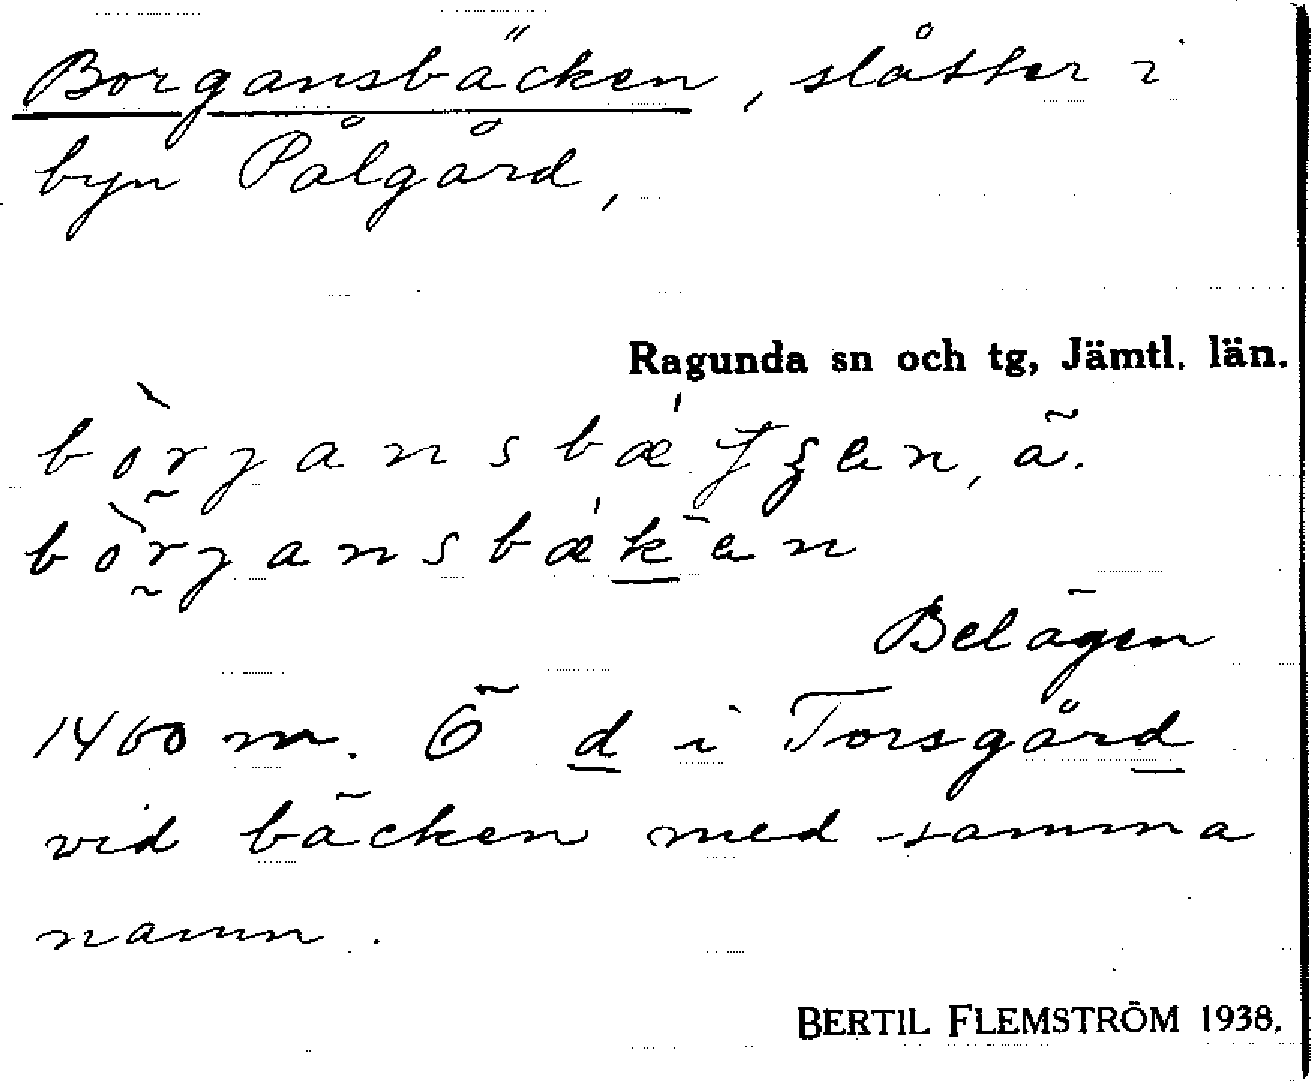 Borgansbäcken, slåtter i
byn Pålgård,
Ragunda sn och tg, Jämtl. län.
Belägen
1460 m. Ö d i Torsgård
vid bäcken med samma
namn.
BERTIL FLEMSTRÖM 1938.